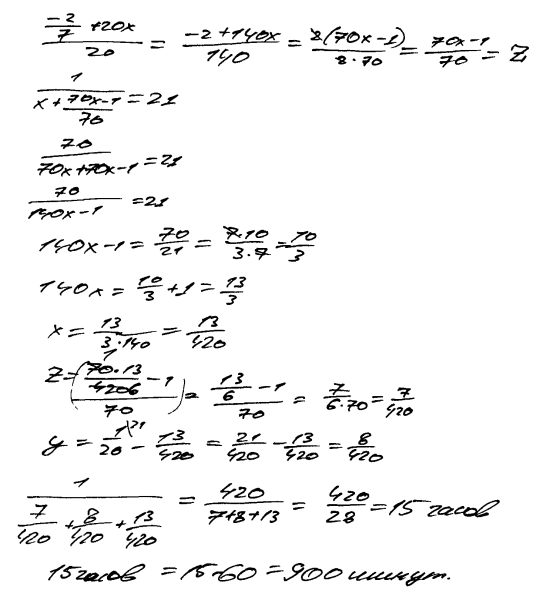 (-2/7 + 20x)/20 = (-2+140x)/140 = 2(70x-1)/(2·70) = (70x-1)/70 = z
1/(x + (70x-1)/70) = 21
70/(70x+70x-1) = 21
70/(140x-1) = 21
140x-1 = 70/21 = 7·10/(3·7) = 10/3
140x = 10/3 + 1 = 13/3
x = 13/(3·140) = 13/420
z = ((70·13/420 6 - 1)/70) = (13/6 - 1)/70 = 7/(6·70) = 7/420
y = 1\21/20 - 13/420 = 21/420 - 13/420 = 8/420
1/(7/420 + 8/420 + 13/420) = 420/(7+8+13) = 420/28 = 15 часов
15 часов = 15·60 = 900 минут.